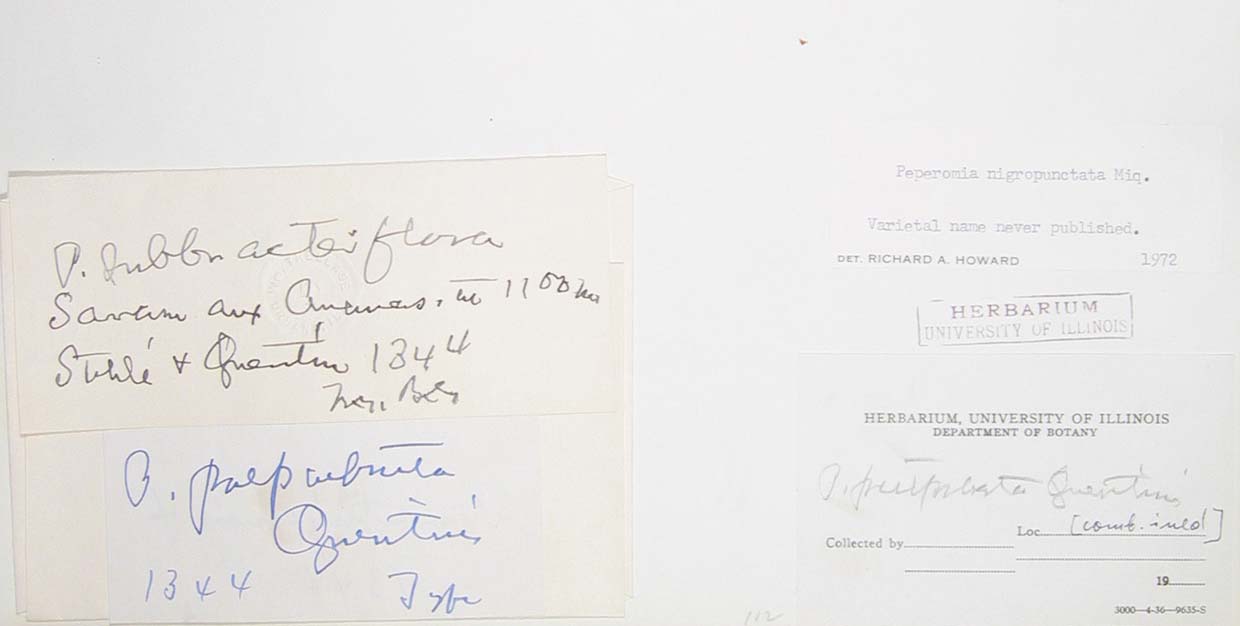 P. subbracteiflora
Savane aux Ananas. alt 1100 m
Stehlé & Quentin 1344
P.
Quentini
1344 Type
Peperomia nigropunctata Miq.
Varietal name never published.
DET. RICHARD A. HOWARD 1972
HERBARIUM
UNIVERSITY OF ILLINOIS
HERBARIUM, UNIVERSITY OF ILLINOIS
DEPARTMENT OF BOTANY
P. Quentini
Loc. [comb. ined]
Collected by
19
3000—4-36—9635-S
112